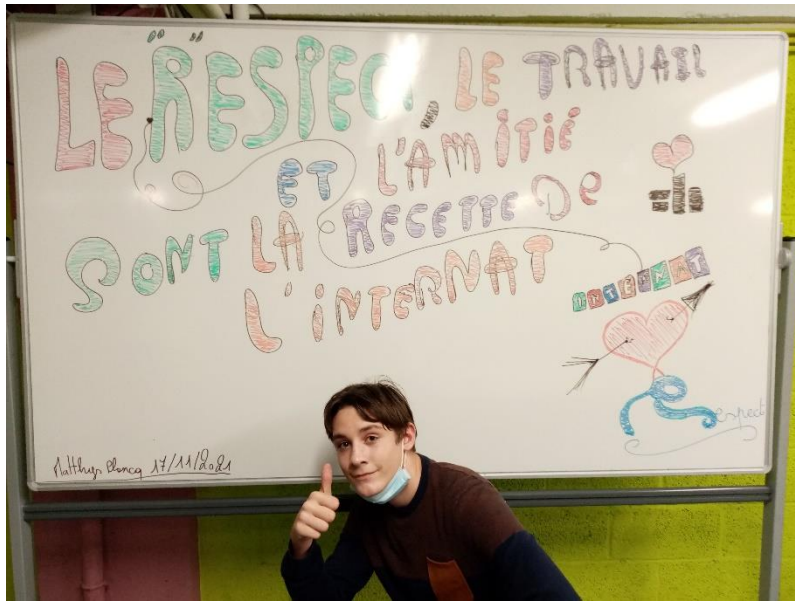 LE RESPECT, LE TRAVAIL
ET L'AMITIÉ
SONT LA RECETTE DE
L'INTERNAT
INTERNAT
Respect
17/11/2021